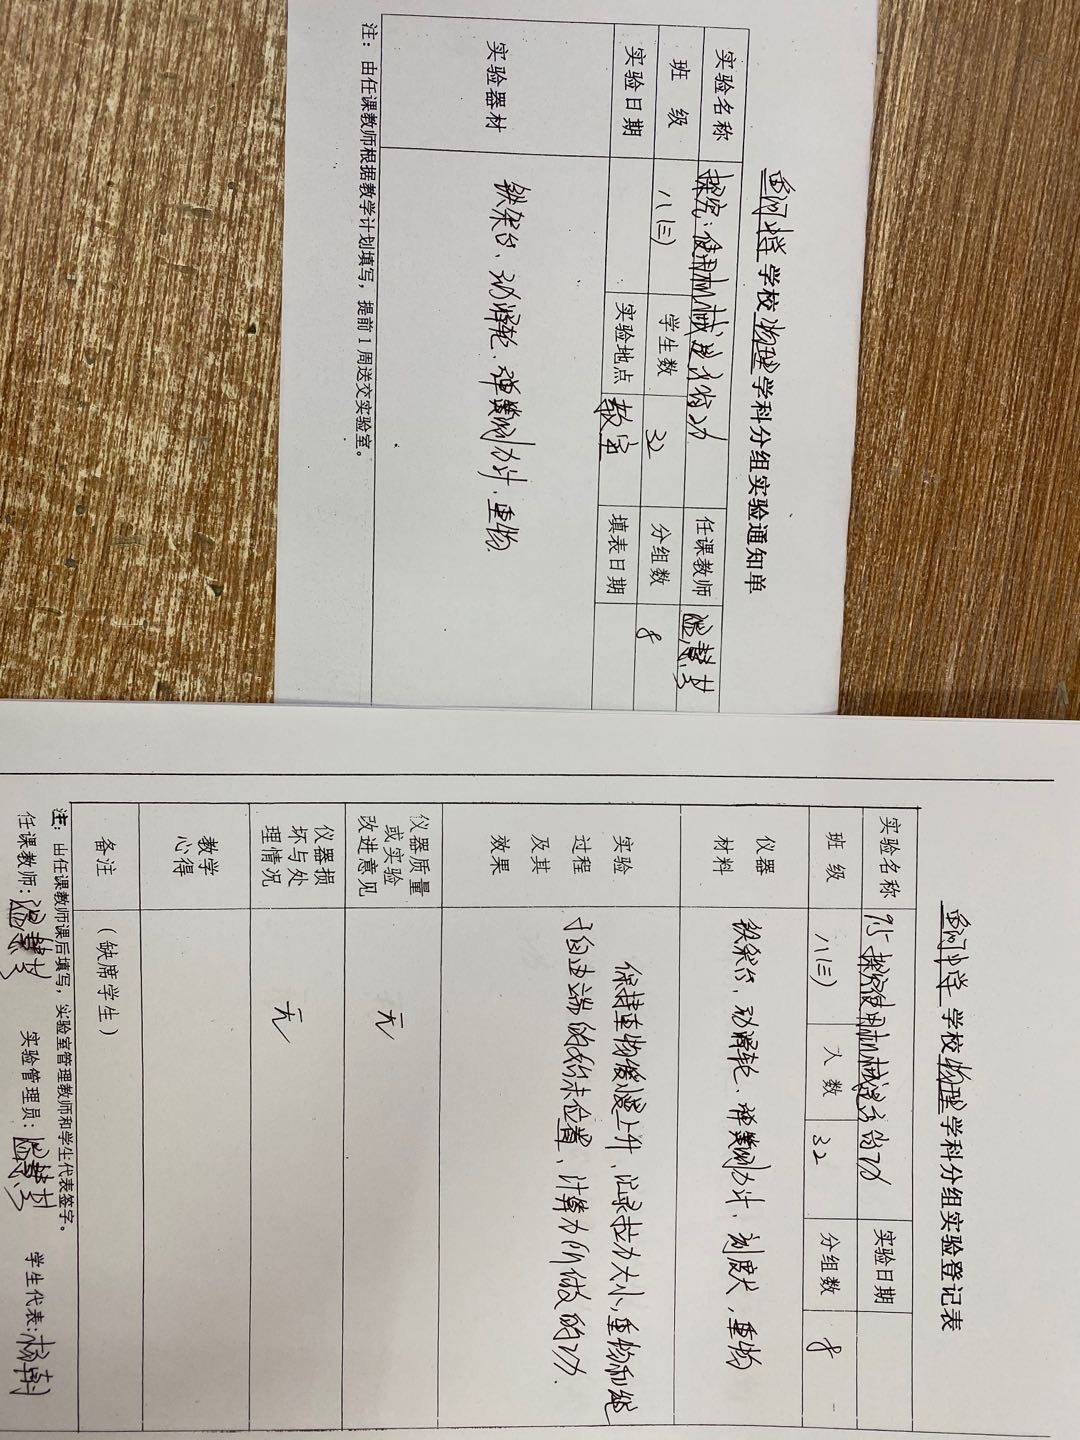 学校物理学科分组实验通知单
实验名称 探究:使用机械是否省功 任课教师
班 级 八(三) 学生数 32 分组数 8
实验日期 实验地点 教室 填表日期
实验器材 铁架台、动滑轮、弹簧测力计、重物
注:由任课教师根据教学计划填写,提前1周送交实验室。
学校物理学科分组实验登记表
实验名称 9.5 探究使用机械是否省功 实验日期
班 级 八(三) 人 数 32 分组数 8
仪器材料 铁架台、动滑轮、弹簧测力计、刻度尺、重物
实验过程及其效果 保持重物缓慢上升,记录拉力大小,重物和绳
子自由端的始末位置,计算力所做的功.
仪器质量或实验改进意见 无
仪器损坏与处理情况 无
教学心得
备注 (缺席学生)
注:由任课教师课后填写,实验室管理教师和学生代表签字。
任课教师: 实验管理员: 学生代表: